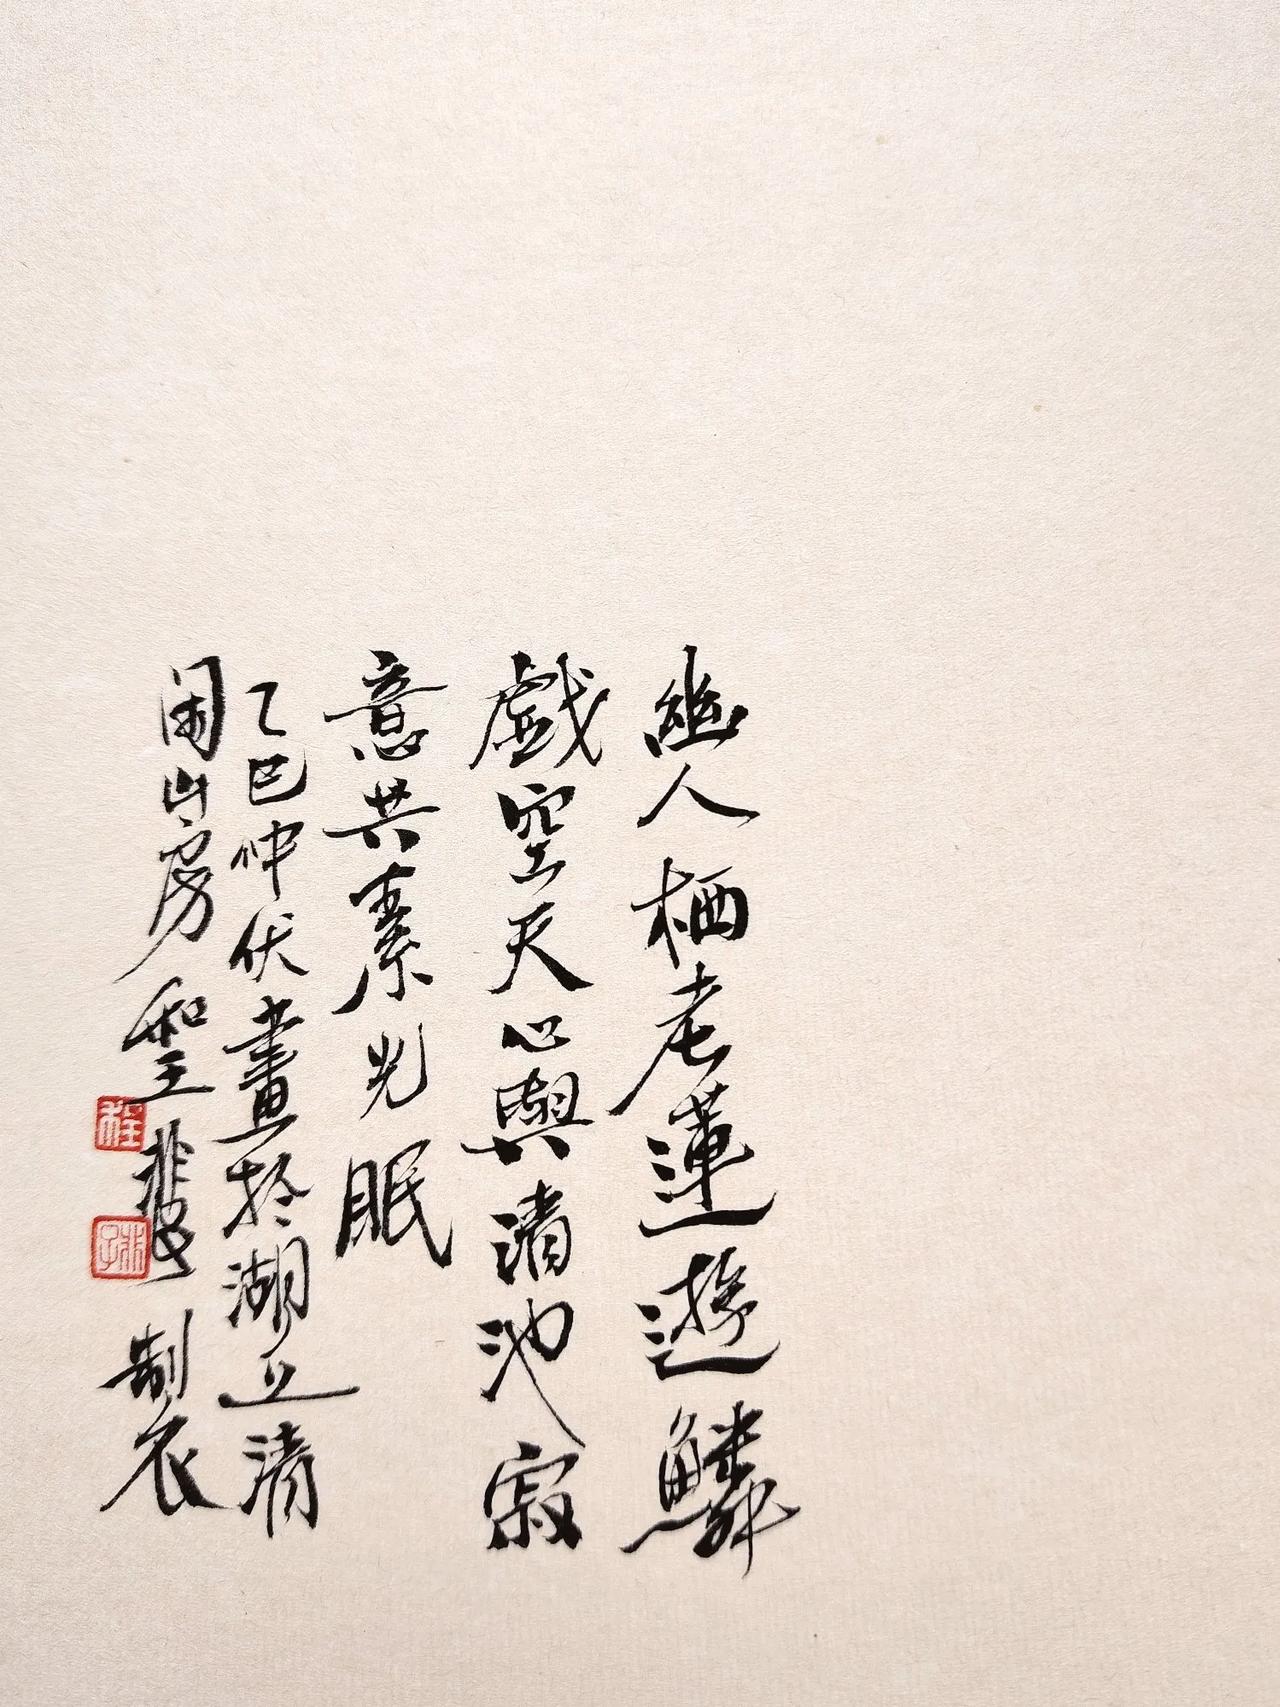 幽人栖老蓮遊鱗
戲空天心與清池寂
意共素光眠
乙巳仲伏畫於湖上清
閑山房 製
程